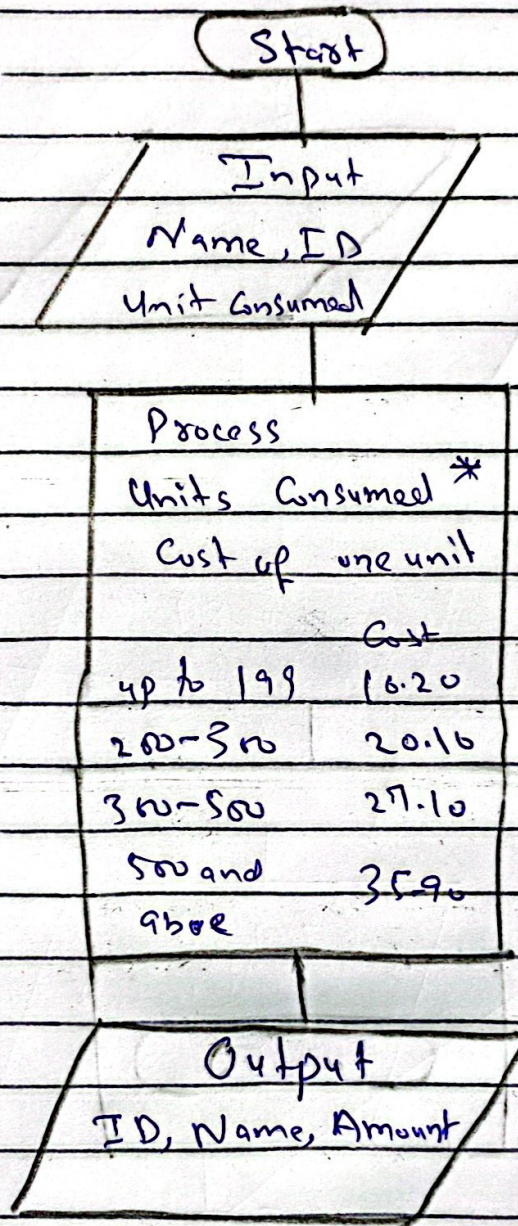 Start
Input
Name, ID
Unit Consumed
Process
Units Consumed *
Cost of one unit
Cost
up to 199 16.20
200-300 20.10
300-500 27.10
500 and 35.90
above
Output
ID, Name, Amount